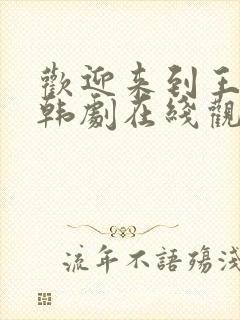 歡迎来到王
韩劇在綫觀
流年不語殤淺